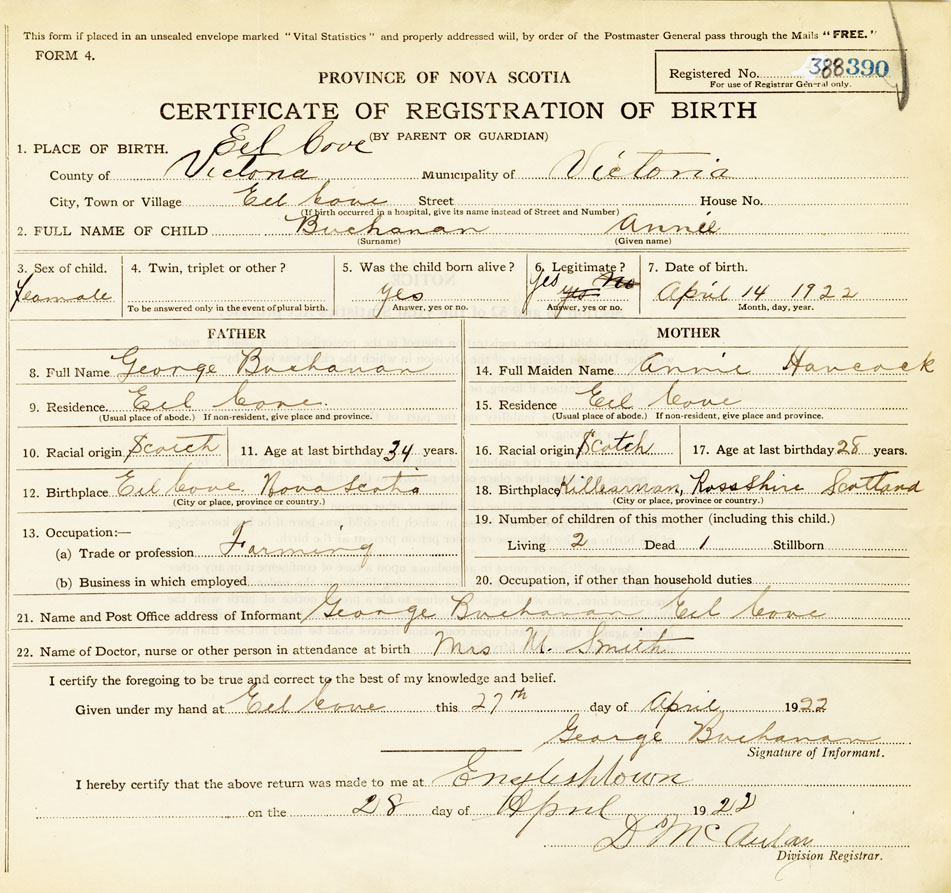 This form if placed in an unsealed envelope marked "Vital Statistics" and properly addressed will, by order of the Postmaster General pass through the Mails "FREE."
FORM 4.
PROVINCE OF NOVA SCOTIA
Registered No. 388390
For use of Registrar General only.
CERTIFICATE OF REGISTRATION OF BIRTH
(BY PARENT OR GUARDIAN)
1. PLACE OF BIRTH. Eel Cove
County of Victoria Municipality of Victoria
City, Town or Village Eel Cove Street House No.
(If birth occurred in a hospital, give its name instead of Street and Number)
2. FULL NAME OF CHILD Buchanan Annie
(Surname) (Given name)
3. Sex of child. 4. Twin, triplet or other? 5. Was the child born alive? 6. Legitimate? 7. Date of birth.
Feamale yes Yes yes No April 14 1922
To be answered only in the event of plural birth. Answer, yes or no. Answer, yes or no. Month, day, year.
FATHER
8. Full Name George Buchanan
9. Residence. Eel Cove.
(Usual place of abode.) If non-resident, give place and province.
10. Racial origin Scotch 11. Age at last birthday 34 years.
12. Birthplace Eel Cove. Nova Scotia
(City or place, province or country.)
13. Occupation:—
(a) Trade or profession Farming
(b) Business in which employed
MOTHER
14. Full Maiden Name Annie Hancock
15. Residence Eel Cove
(Usual place of abode.) If non-resident, give place and province.
16. Racial origin Scotch 17. Age at last birthday 28 years.
18. Birthplace Killearnan, RossShire Scotland
(City or place, province or country.)
19. Number of children of this mother (including this child.)
Living 2 Dead 1 Stillborn
20. Occupation, if other than household duties
21. Name and Post Office address of Informant George Buchanan Eel Cove
22. Name of Doctor, nurse or other person in attendance at birth Mrs M. Smith
I certify the foregoing to be true and correct to the best of my knowledge and belief.
Given under my hand at Eel Cove this 27th day of April 1922
George Buchanan
Signature of Informant.
I hereby certify that the above return was made to me at Englishtown
on the 28 day of April 1922
D McAulay
Division Registrar.